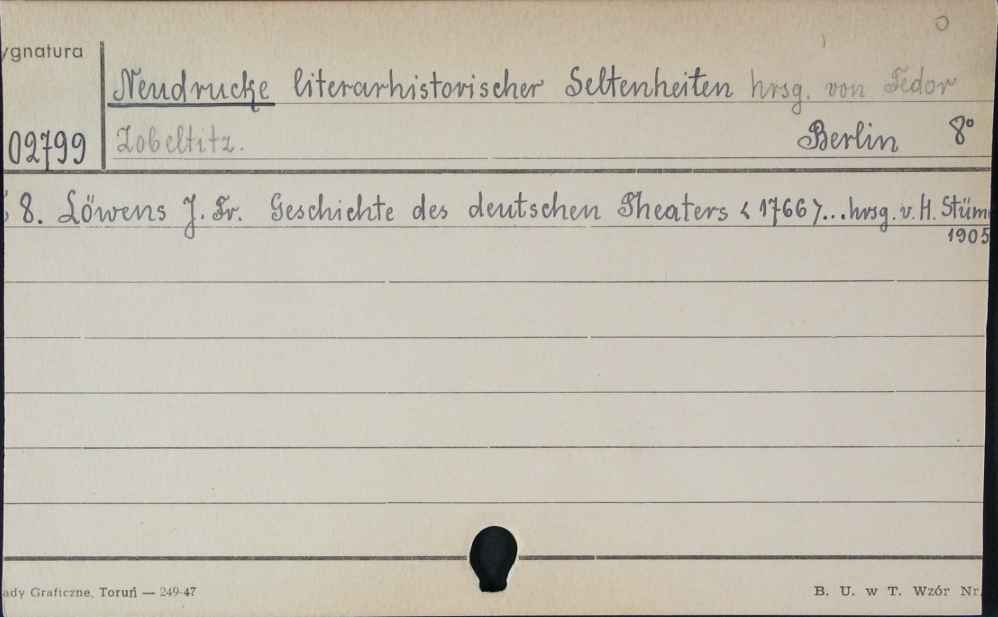 ygnatura
Neudrucke literarhistorischer Seltenheiten hrsg. von Fedor
02799 Zobeltitz. Berlin 8°
8. Löwens J. Fr. Geschichte des deutschen Theaters <1766>...hrsg. v. H. Stüm
1905
ady Graficzne, Toruń — 249-47 B. U. w T. Wzór Nr.